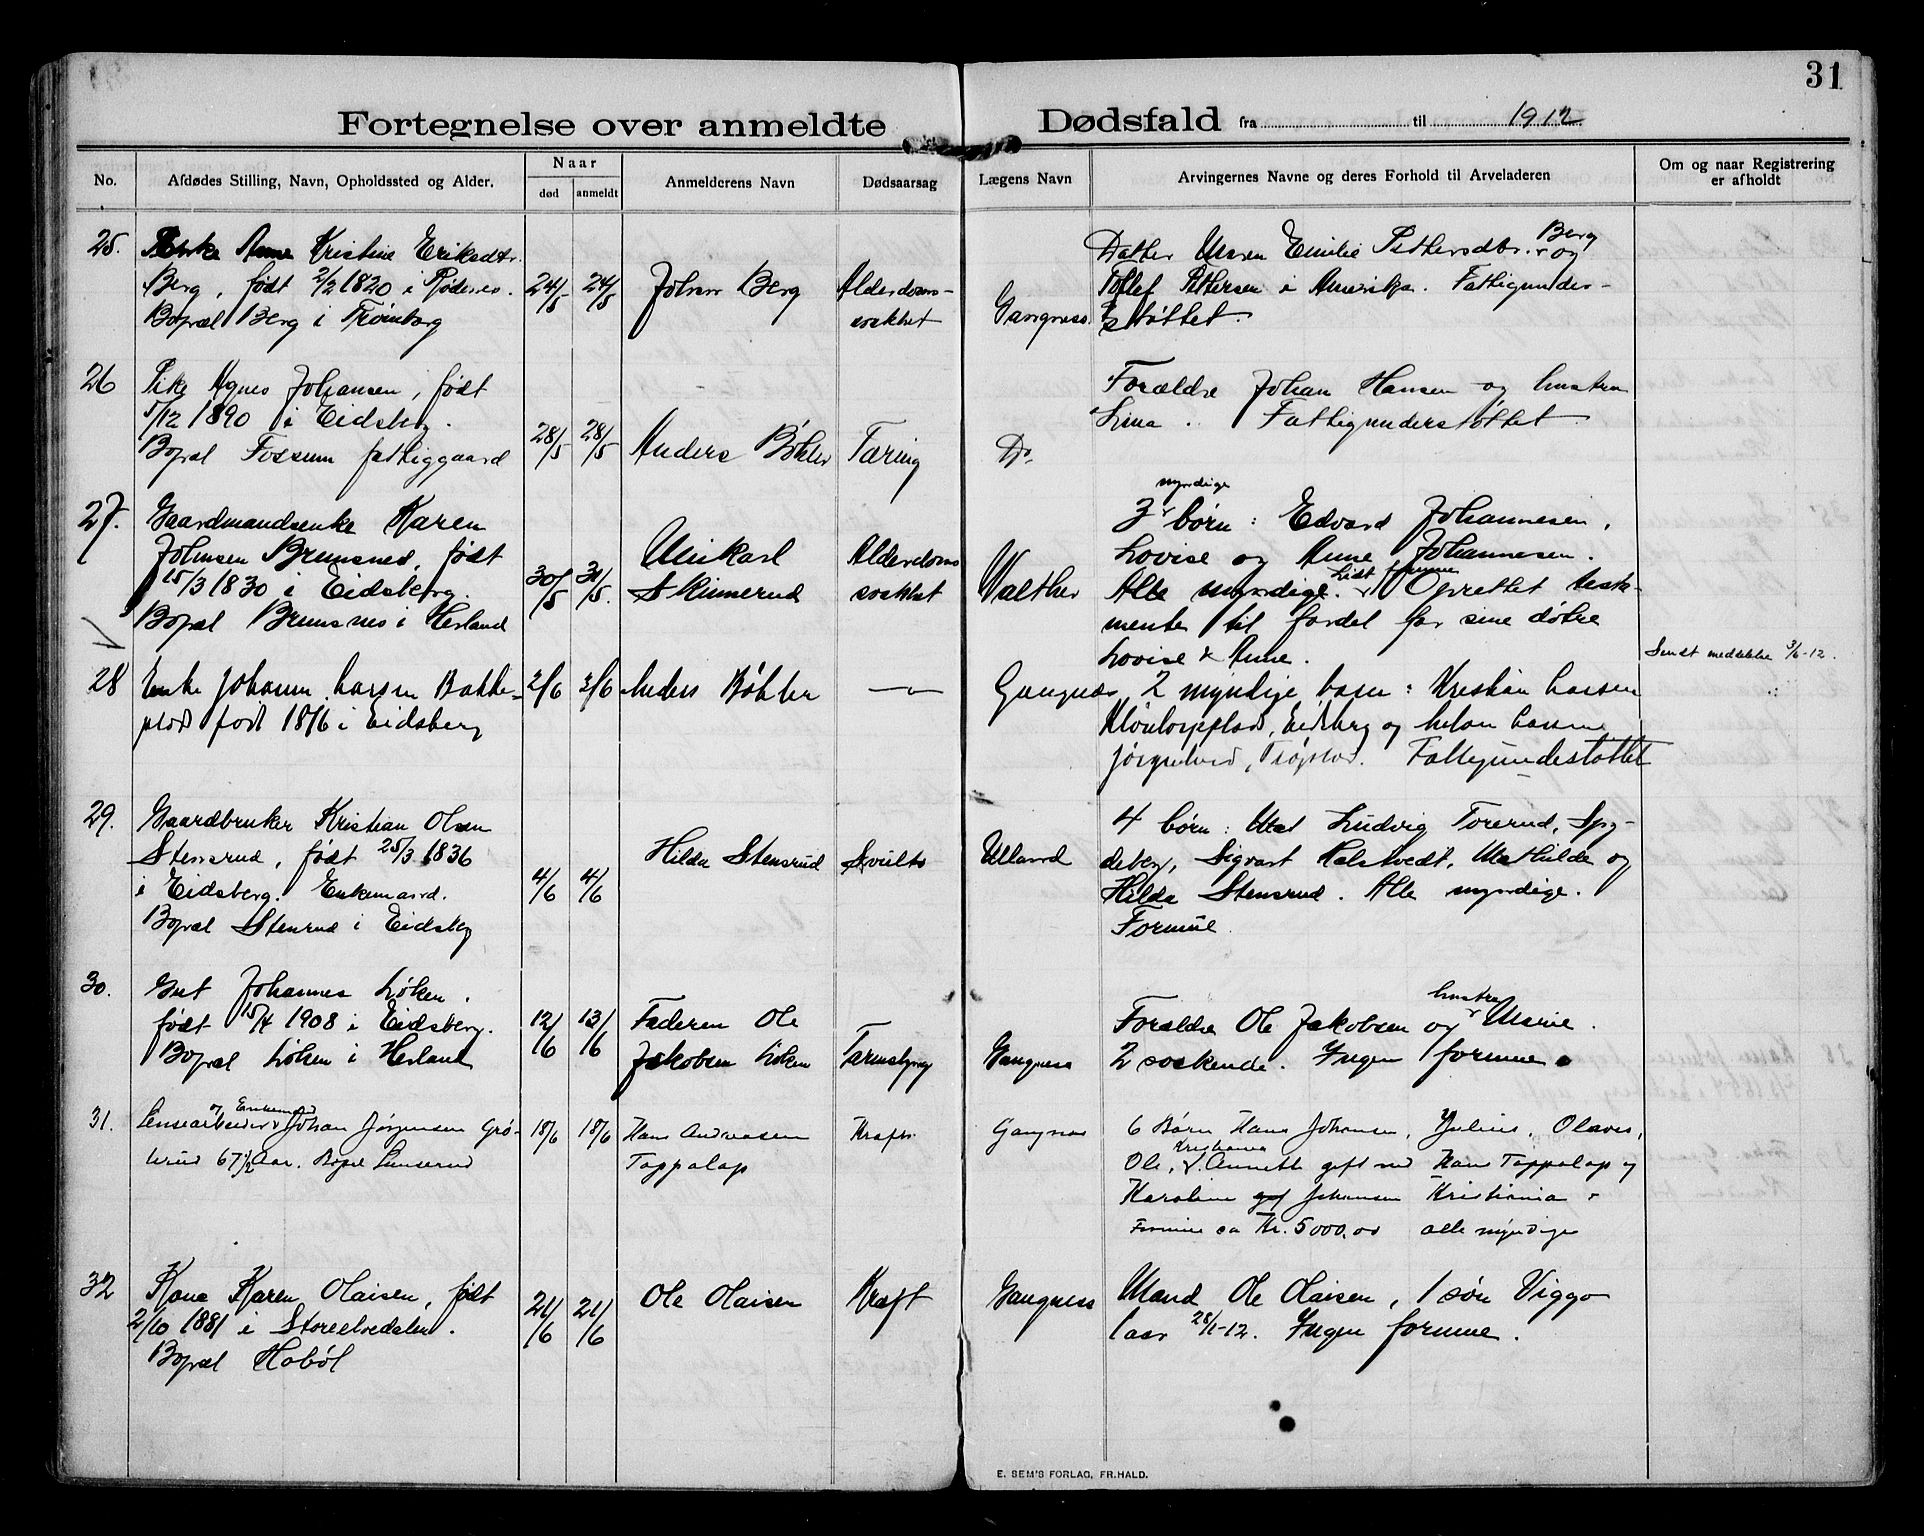 31
Fortegnelse over anmeldte Dødsfald fra til 1912.
No. Afdødes Stilling, Navn, Opholdssted og Alder. Naar død anmeldt Anmelderens Navn Dødsaarsag Lægens Navn Arvingernes Navne og deres Forhold til Arveladeren Om og naar Registrering er afholdt
25. Kristine Eriksdtr.
Berg, født 2/2 1820 i Rødenes.
Bopæl Berg i Trømborg
24/5 24/5
Johan Berg
Alderdoms-
svakhet
Gangness.
Datter Maren Emilie Pettersdtr. Berg og
Pettersen i Amerika. Fattigunder-
støttet.
26 Pike Agnes Johansen, født
5/12 1890 i Eidsberg.
Bopæl Fossum fattiggaard
28/5 28/5
Anders Bøhler
Tæring
Do
Forældre Johan Hansen og hustru
Lina. Fattigunderstøttet.
27. Gaardmandsenke Karen
Johnsen Brunsnes, født
15/3 1830 i Eidsberg.
Bopæl Brunsnes i Herland
30/5 31/5.
Unikarl
Skinnerud
Alderdoms
svakhet
Walther
3 myndige børn: Edvard Johannesen,
Lovise og Anne Johannesen.
Alle myndige. Lidt formue Oprettet testa-
mente til fordel for sine døtre
Lovise & Anne.
Sendt meddelelse 3/6-12.
28 Enke Johanne Larsen Bakke-
plads født 1876 i Eidsberg
2/6 2/6
Anders Bøhler
—
Gangnæs
2 myndige børn: Kristian Larsen
Eidsberg og Larsen
Trøgstad. Fattigunderstøttet
29. Gaardbruker Kristian Olsen
Stensrud, født 25/3 1836
i Eidsberg. Enkemand.
Bopæl Stensrud i Eidsberg
4/6 4/6
Hilda Stensrud
Svulst
Ulland
4 børn: Ludvig Torerud, Spy-
deberg, Sigvart Halstvedt, Mathilde og
Hilda Stensrud. Alle myndige.
Formue.
30. Gut Johannes Løken.
født 15/4 1908 i Eidsberg.
Bopæl Løken i Herland
12/6 13/6
Faderen Ole
Jakobsen Løken
Tarmslyng
Gangness
Forældre Ole Jakobsen og hustru Marie.
2 søskende. Ingen formue.
31. Lensearbeider og Enkemand Johan Jørgensen Grø-
terud 67 1/2 Aar. Bopæl Lenserud
18/6 18/6
Hans Andreasen
Toppalap
Kræft.
Gangnæs
6 Børn Hans Johansen, Julius, Olaves,
Ole, Kristiania Annette gift med Hans Toppalap og
Karoline Johansen Kristiania
Formue ca Kr. 5000,00 alle myndige
32 Kone Karen Olaisen, født
2/10 1881 i Storeelvedalen.
Bopæl Hobøl
21/6 21/6
Ole Olaisen
Kræft
Gangness
Mand Ole Olaisen, 1 søn Viggo
1 aar 28/1-12. Ingen formue.
E. SEM'S FORLAG, FR.HALD.